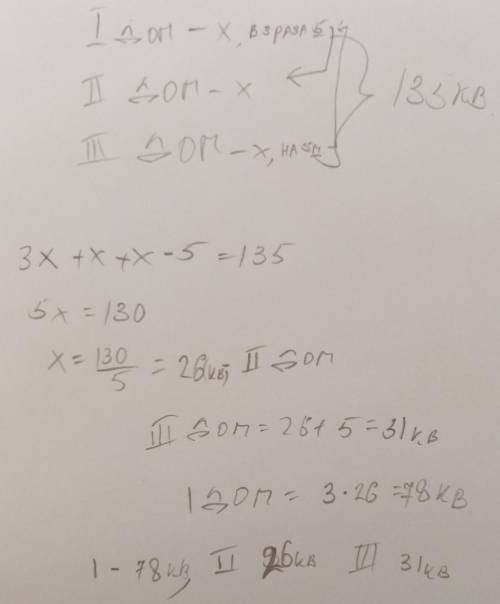 I ДОМ - х, В 3 РАЗА Б
II ДОМ - х
III ДОМ - х, НА 5
135 КВ.
3х + х + х - 5 = 135
5х = 130
х = 130/5 = 26 кв; II ДОМ
III ДОМ = 26 + 5 = 31 кв
I ДОМ = 3 · 26 = 78 КВ
1 - 78 кв, II 26 кв III 31 кв